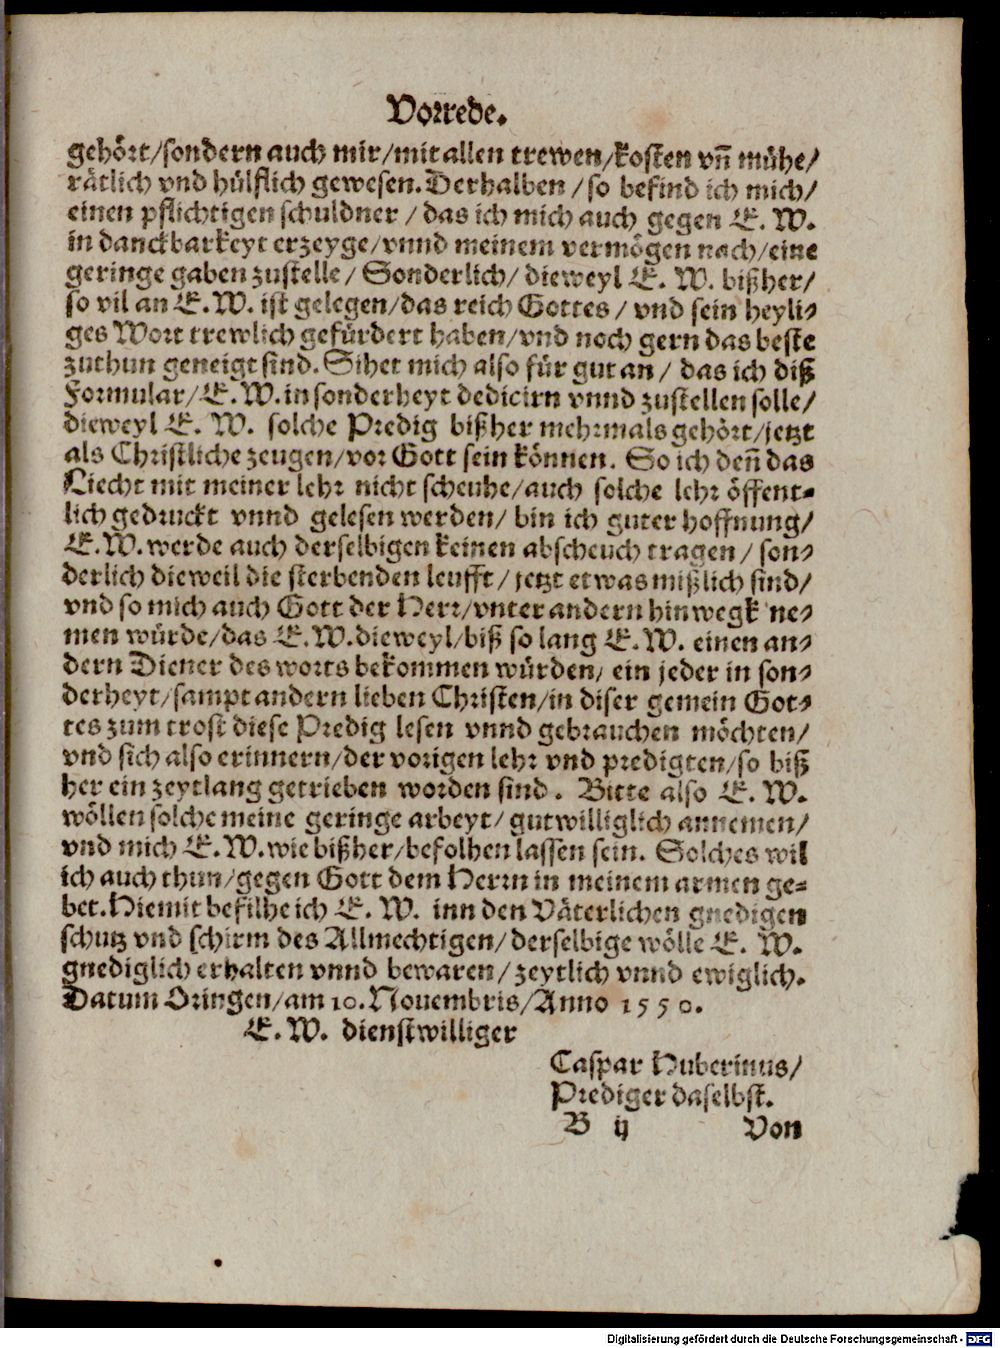 Vorrede.
gehört/sondern auch mir/mit allen trewen/kosten vñ mühe/
rätlich vnd hülflich gewesen. Derhalben/so befind ich mich/
einen pflichtigen schuldner/das ich mich auch gegen E. W.
in danckbarkeyt erzeyge/vnnd meinem vermögen nach/eine
geringe gaben zustelle/Sonderlich/dieweyl E. W. bißher/
so vil an E. W. ist gelegen/das reich Gottes/vnd sein heyli⸗
ges Wort trewlich gefürdert haben/vnd noch gern das beste
zuthun geneigt sind. Sihet mich also für gut an/das ich diß
Formular/E. W. in sonderheyt dedicirn vnnd zustellen solle/
dieweyl E. W. solche Predig bißher mehrmals gehört/jetzt
als Christliche zeugen/vor Gott sein können. So ich deñ das
Liecht mit meiner lehr nicht scheuhe/auch solche lehr öffent⸗
lich gedruckt vnnd gelesen werden/bin ich guter hoffnung/
E. W. werde auch derselbigen keinen abscheuch tragen/son⸗
derlich dieweil die sterbenden leufft/jetzt etwas mißlich sind/
vnd so mich auch Gott der Herr/vnter andern hinwegk ne⸗
men würde/das E. W. dieweyl/biß so lang E. W. einen an⸗
dern Diener des worts bekommen würden/ein jeder in son⸗
derheyt/sampt andern lieben Christen/in diser gemein Got⸗
tes zum trost diese Predig lesen vnnd gebrauchen möchten/
vnd sich also erinnern/der vorigen lehr vnd predigten/so biß
her ein zeytlang getrieben worden sind. Bitte also E. W.
wöllen solche meine geringe arbeyt/gutwilliglich annemen/
vnd mich E. W. wie bißher/befolhen lassen sein. Solches wil
ich auch thun/gegen Gott dem Herrn in meinem armen ge⸗
bet. Hiemit befilhe ich E. W. inn den Väterlichen gnedigen
schutz vnd schirm des Allmechtigen/derselbige wölle E. W.
gnediglich erhalten vnnd bewaren/zeytlich vnnd ewiglich.
Datum Oringen/am 10. Nouembris/Anno 1550.
E. W. dienstwilliger
Caspar Huberinus/
Prediger daselbst.
B ij Von
Digitalisierung gefördert durch die Deutsche Forschungsgemeinschaft - DFG